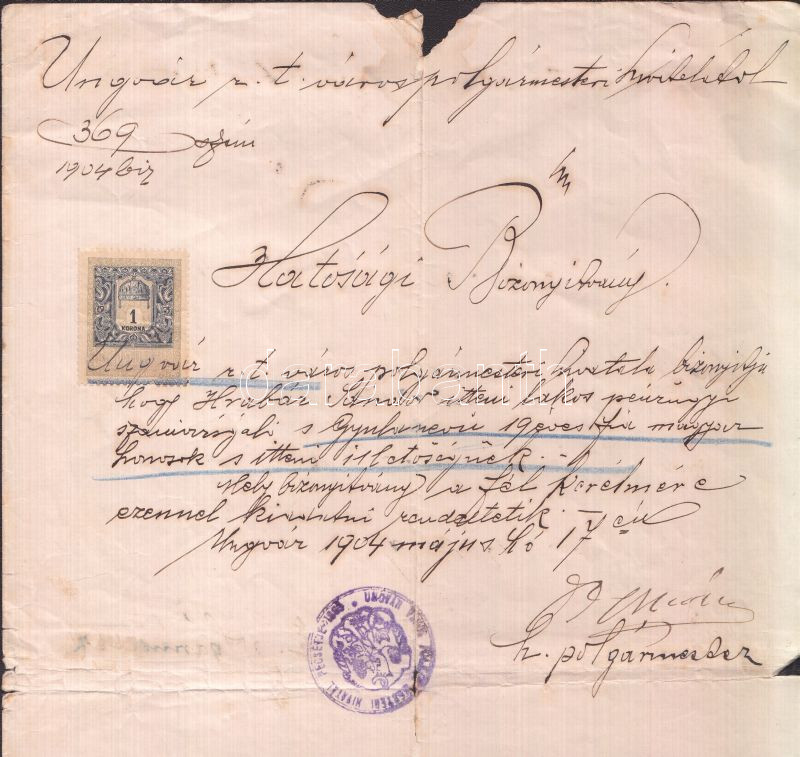 Ungvár r. t. város polgármesteri hivatalától
369 szám
1904 biz
Hatósági Bizonyitvány.
1
KORONA
Ungvár r. t. város polgármesteri hivatala bizonyitja
hogy Hrabár Sándor itteni lakos pénzügyi
számvizsgáló s Gyula nevü 19 éves fia magyar
honosok s itteni illetőségüek. –
Mely bizonyitvány a fél kérelmére
ezennel kiadatni rendeltetik. –
Ungvár 1904 május hó 17 én
h. polgármester
UNGVÁR VÁROS POLGÁRMESTERI HIVATAL PECSÉTJE